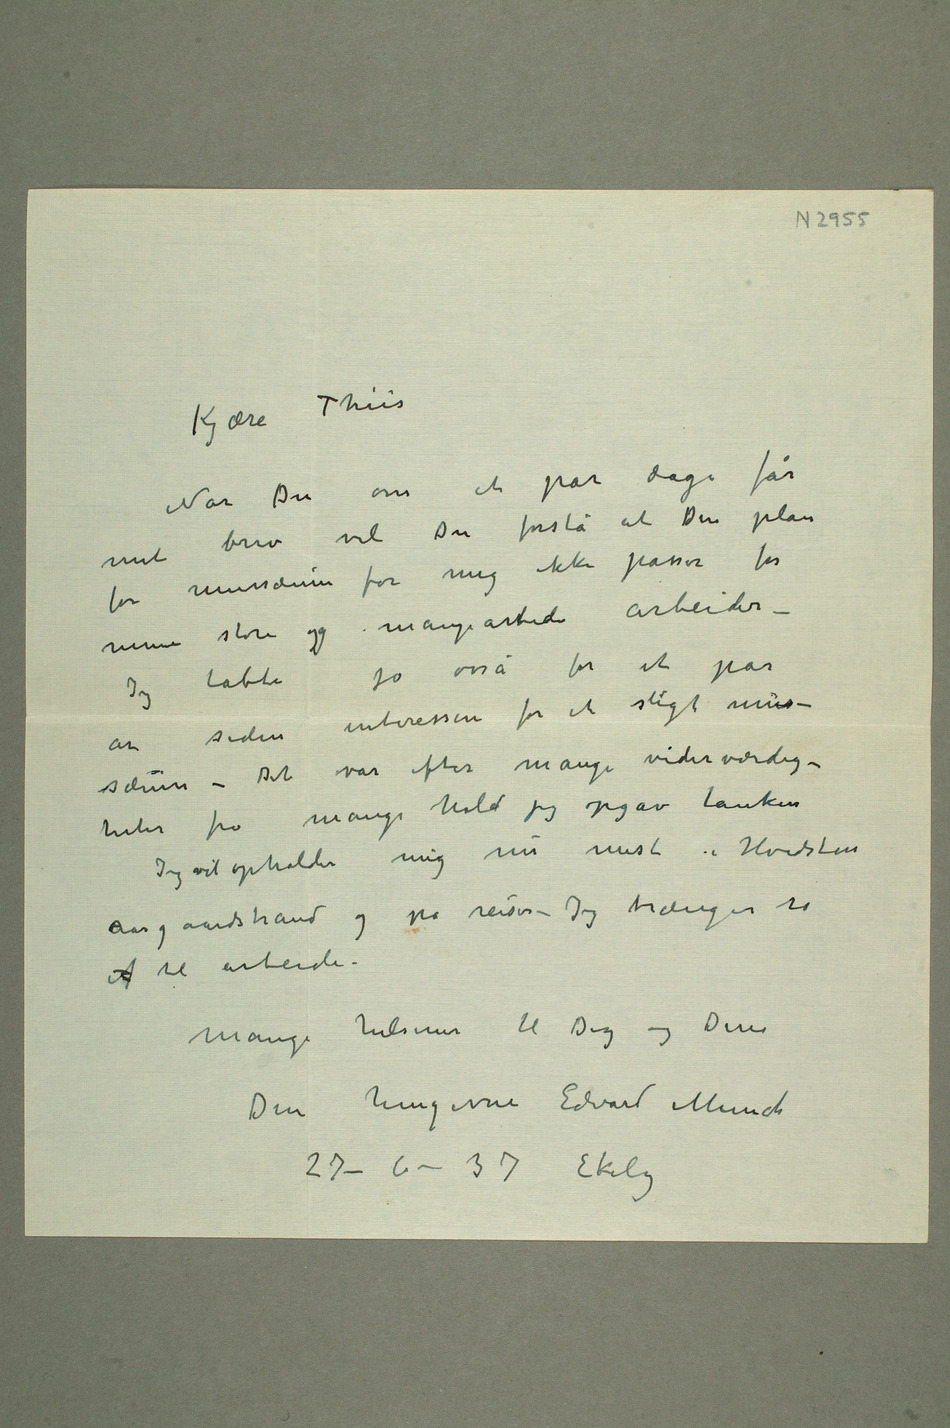 N 2955
Kjære Thiis
Når Du om et par dage får
mit brev vil Du forstå at Din plan
for mussæum for mig ikke passer for
mine store og mangeartede arbeider –
Jeg tabte jo osså for et par
år siden interessen for et sligt mus–
sæum – Det var efter mange viderværdig–
heter fra mange hold jeg opgav tanken
Jeg vil opholder mig nu mest i Hvidsten
Aasgaardstrand og på reiser – Jeg trænger ro
til arbeide.
Mange hilsener til Dig og Dine
Din hengivne Edvard Munch
27 – 6 – 37 Ekely